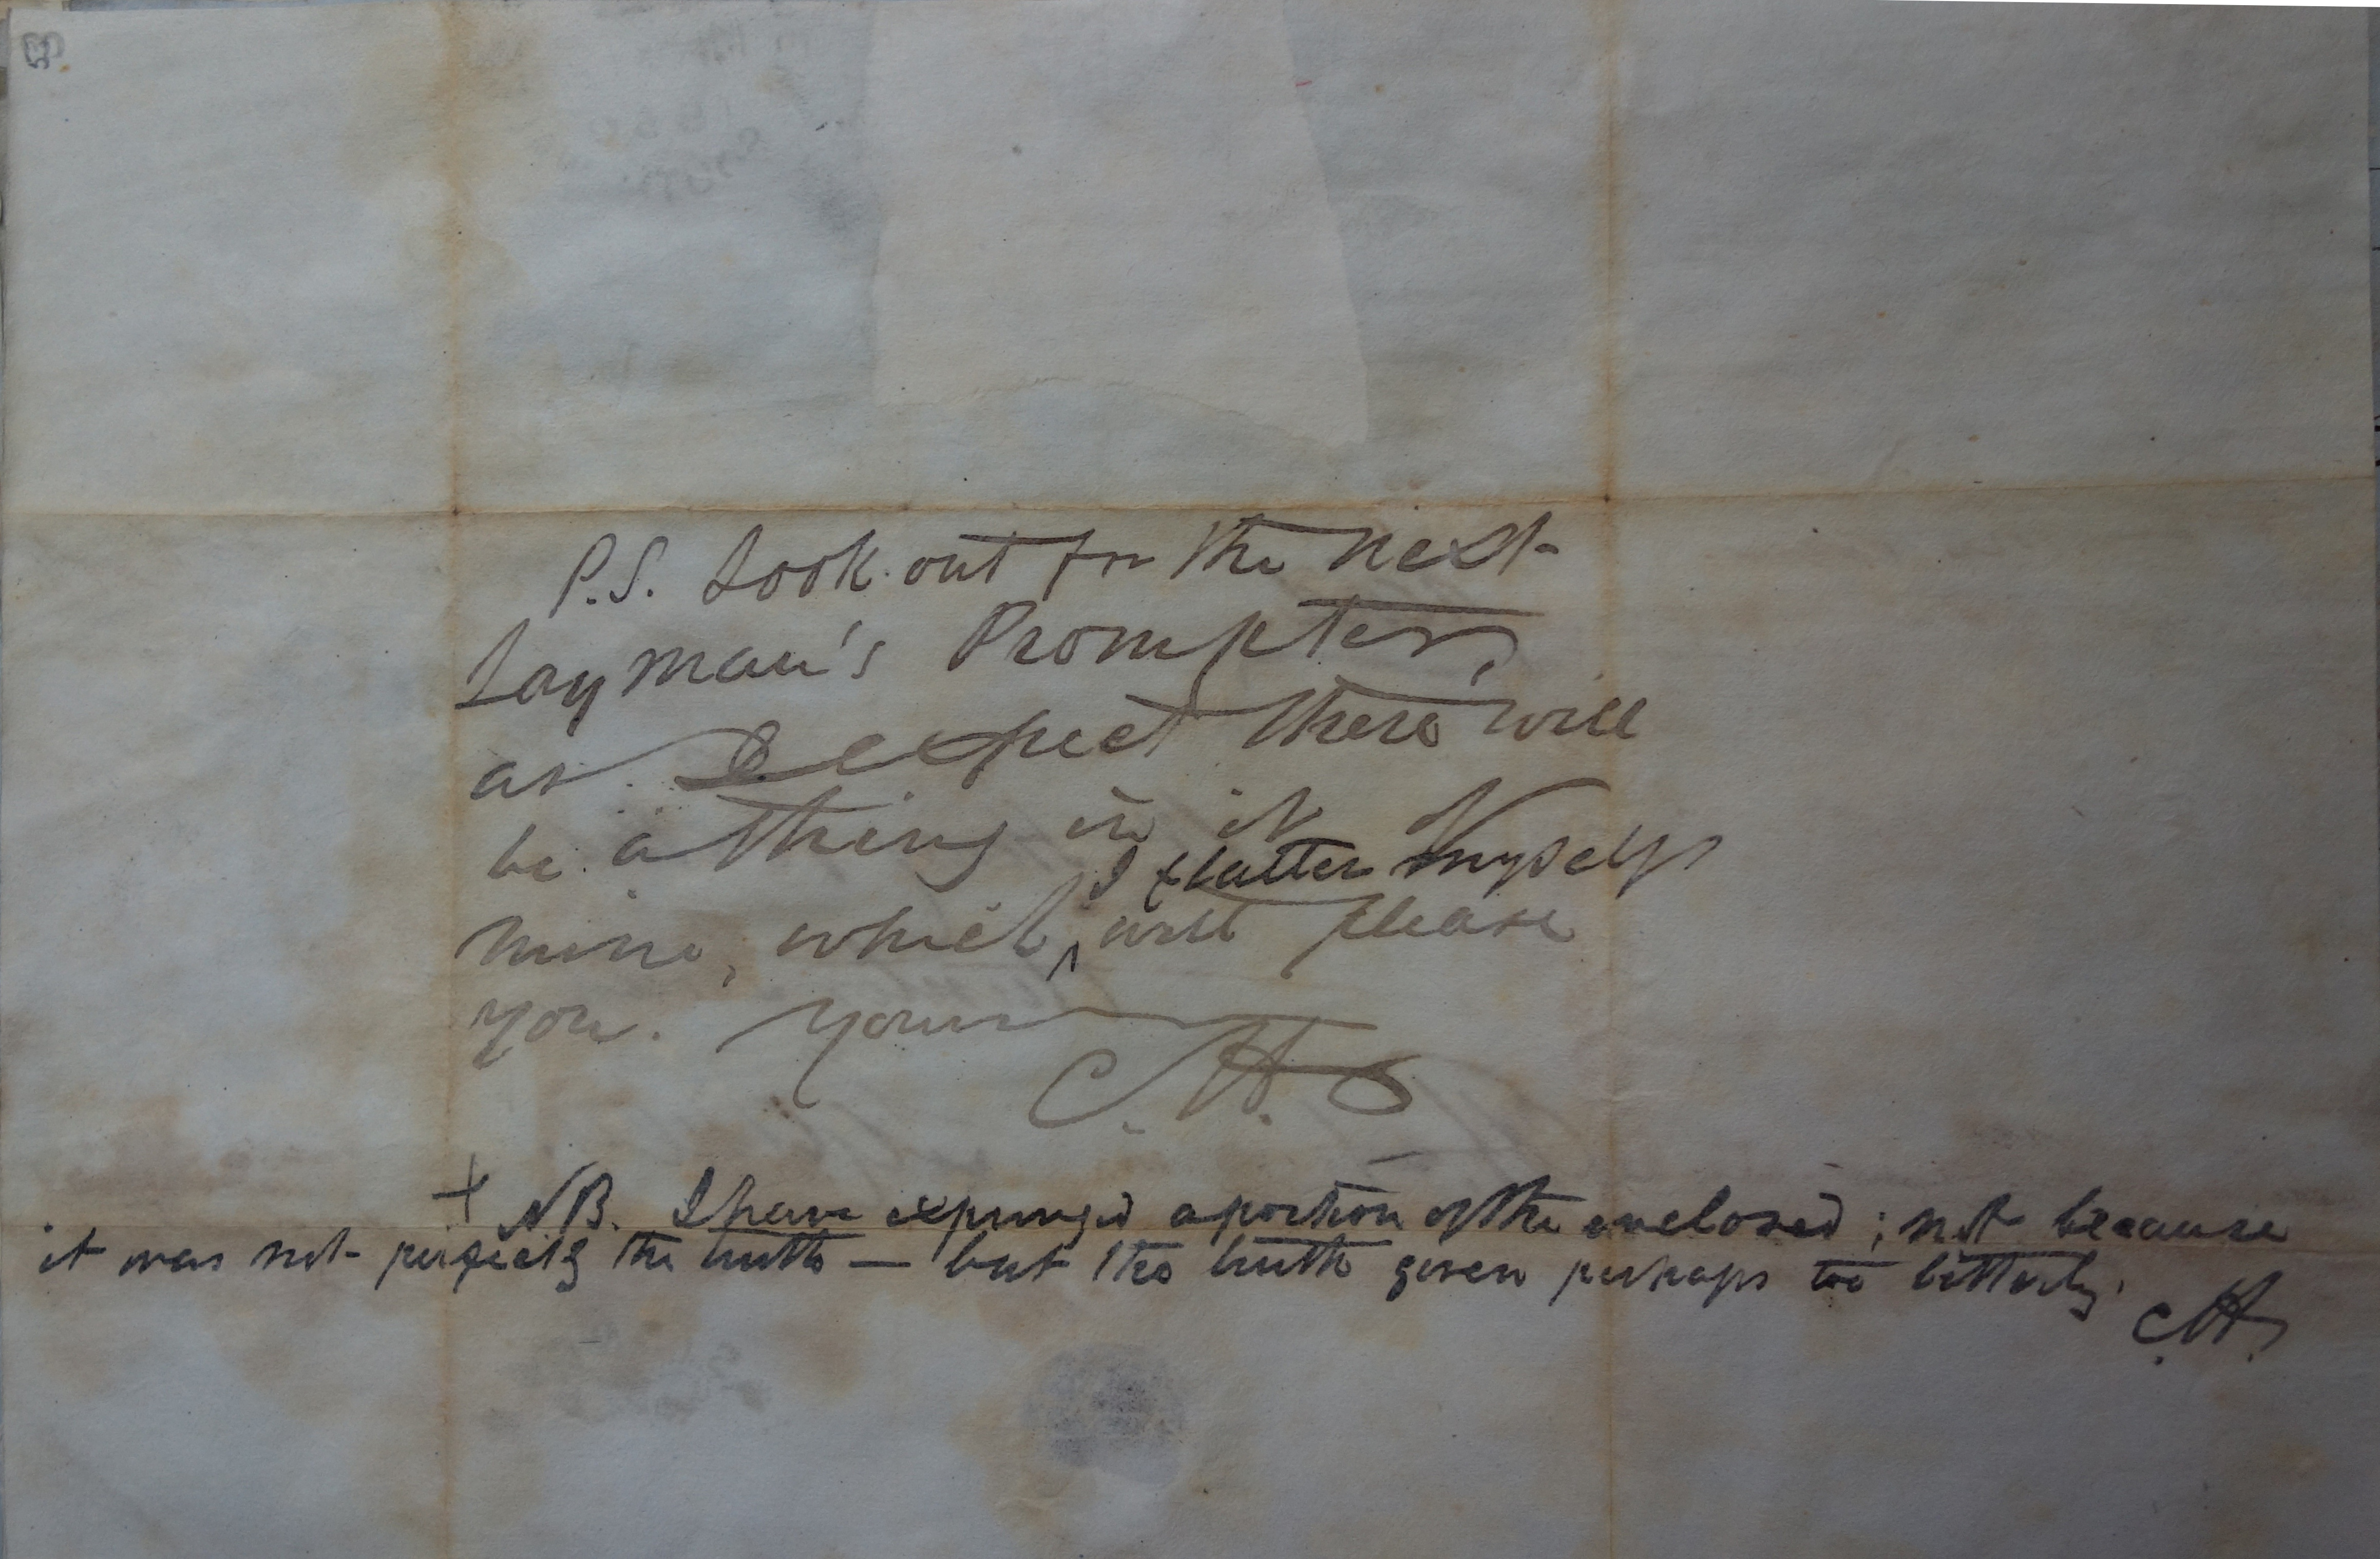 P.S. Look out for the next
Layman's Prompter,
as I expect there will
be a thing in it of
I flatter myself
mine, which ^ will please
you. Yours
C.H.
+ NB. I have expunged a portion of the enclosed; not because
it was not perfectly the truth — but the truth given perhaps too bitterly.
C.H.